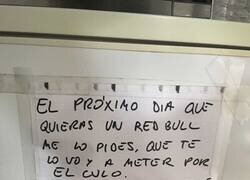 EL PRÓXIMO DIA QUE
QUIERAS UN RED BULL
ME LO PIDES, QUE TE
LO VOY A METER POR
EL CULO.